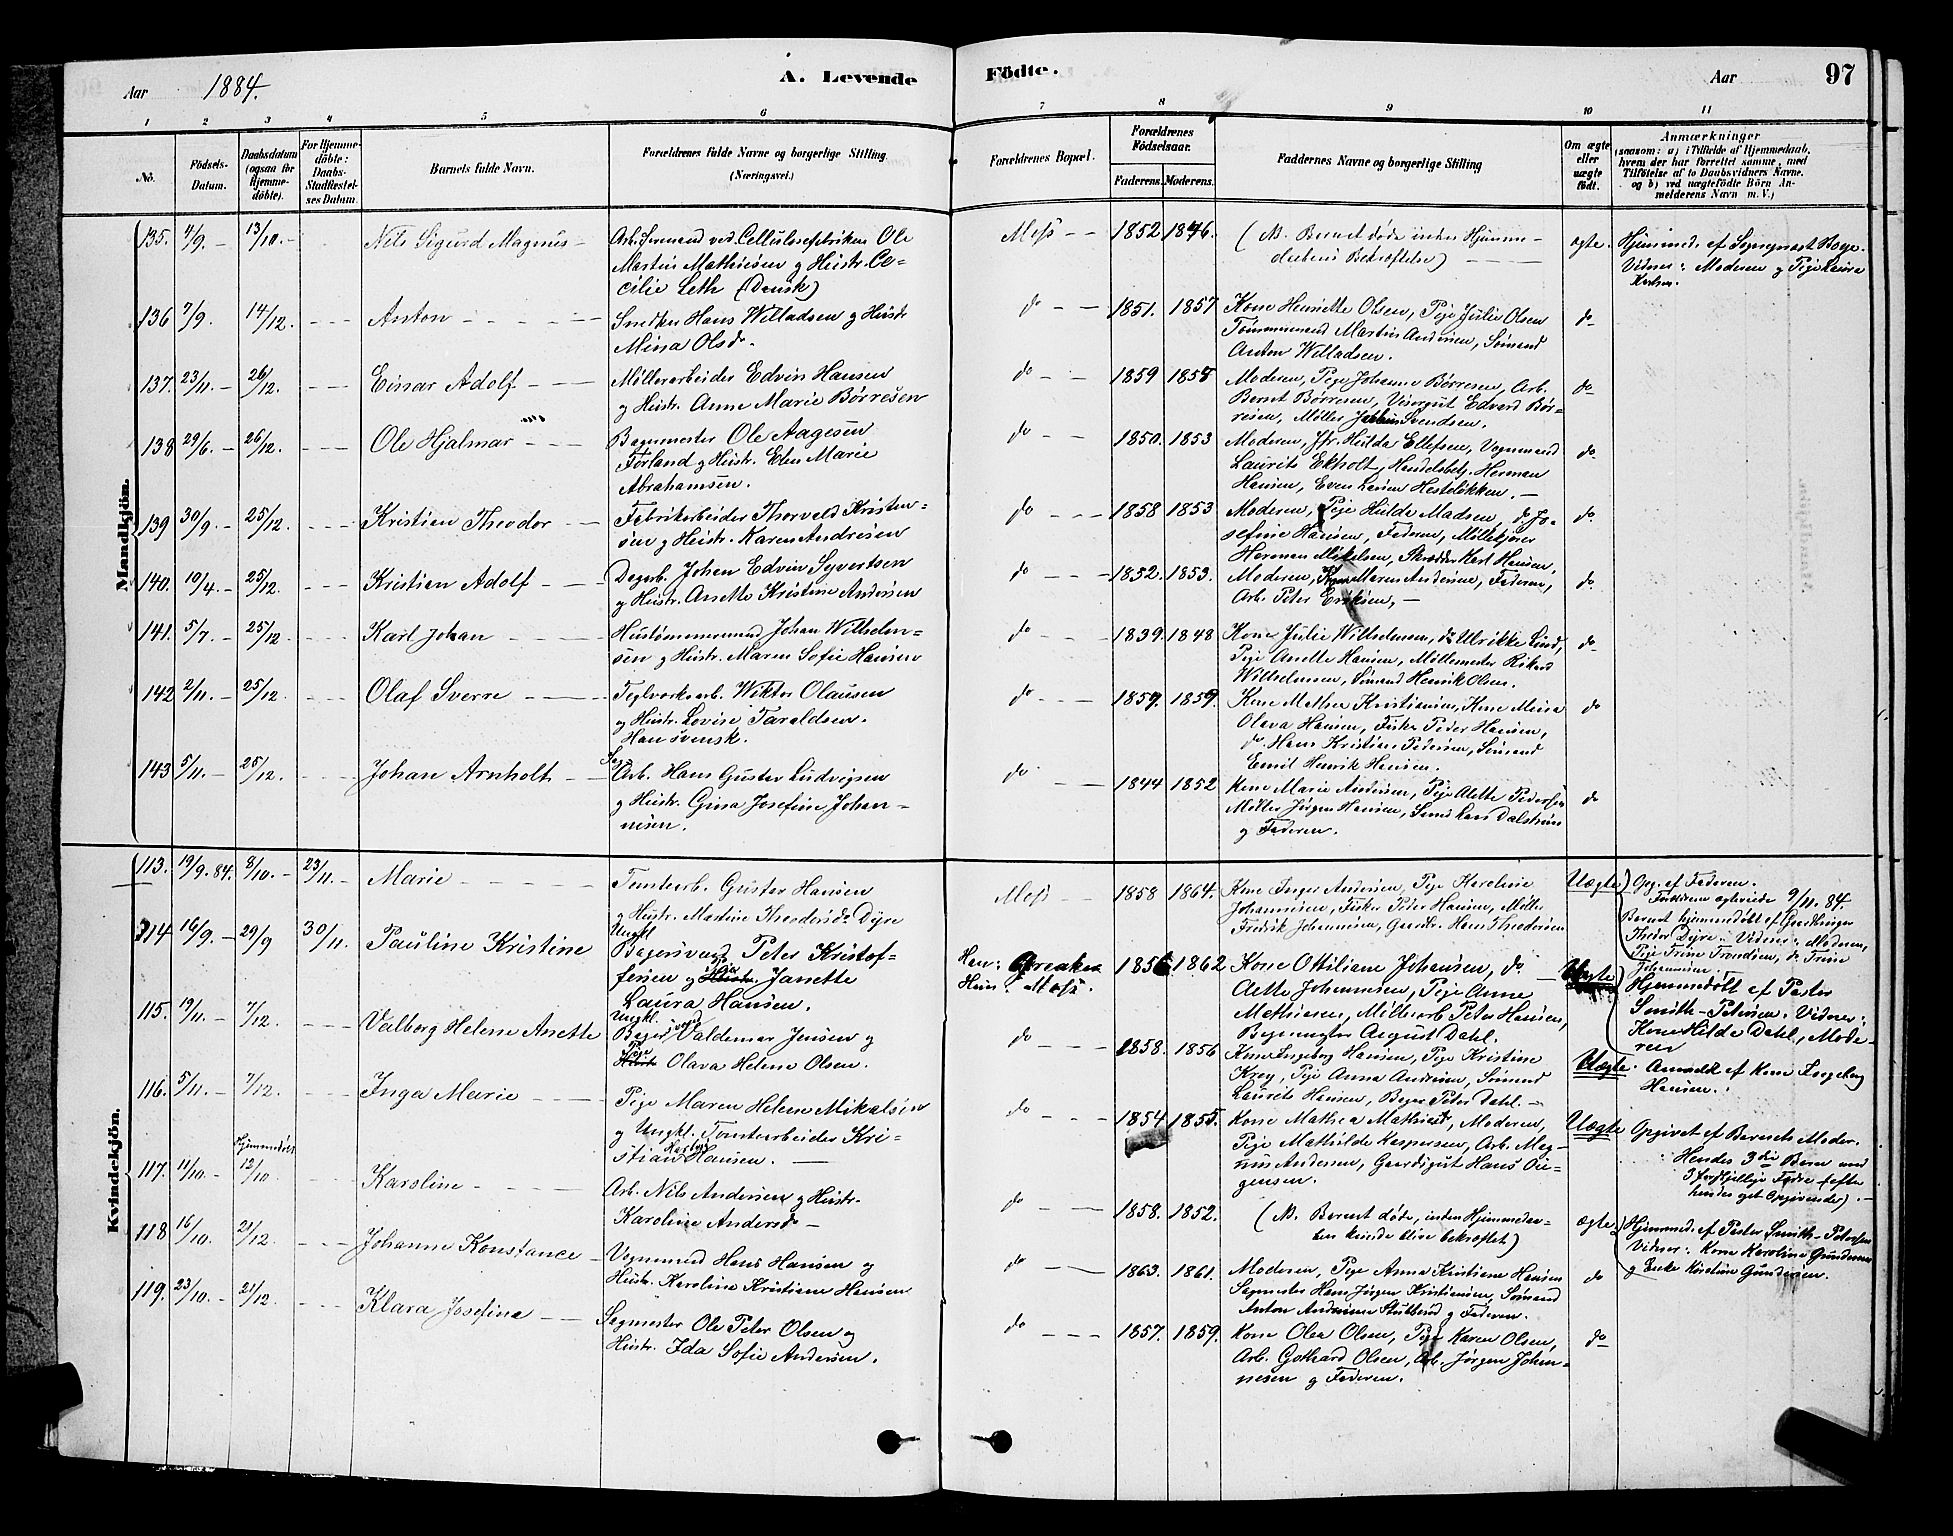 Aar 1884.
A. Levende
Födte.
Aar
97
1 2 3 4 5 6
7 8 9 10 11
No.
Födsels-
Datum.
Daabsdatum
(ogsaa for
Hjemme-
döbte).
For Hjemme-
döbte:
Daabs-
Stadfæstel-
ses Datum.
Barnets fulde Navn.
Forældrenes fulde Navne og borgerlige Stilling
(Næringsvei.)
Forældrenes Bopæl.
Forældrenes
Födselsaar.
Faderens. Moderens.
Faddernes Navne og borgerlige Stilling
Om ægte
eller
uægte
födt.
Anmærkninger
(saasom: a) i Tilfælde af Hjemmedaab,
hvem der har forrettet samme, med
Tilföielse af to Daabsvidners Navne,
og b) ved uægtefödte Börn An-
melderens Navn m. V.)
Mandkjön.
135. 4/9. – 13/10. – Nils Sigurd Magnus – Arb. formand ved Cellulosefabriken Ole
Martin Mathiesen g Hustr. Ce=
cilie Leth (Dansk)
Moss – – 1852 1846. (NB. Barnet døde inden Hjemme –
daabens Bekræftelse)
ægte. Hjemmed. af Sognepræst Hage.
Vidner: Moderen g Pige Laura
136 7/9. 14/12. – – – Anton – – – – Snedker Hans Willadsen g Hustr.
Mina Olsd.
do – – 1851. 1857 Kone Henriette Olsen, Pige Julie Olsen
Tømmermand Martin Andersen, Sømand
Anton Willadsen.
do
137. 23/11. – 26/12. – – – Einar Adolf – – – Møllerarbeider Edvin Hansen
g Hustr. Anne Marie Børresen
do – – 1859 1858 Moderen, Pige Johanne Børresen, Arb.
Bernt Børresen, Visergut Edvard Bør=
resen, Møller Johan Svendsen.
do
138 29/6. – 26/12. – – Ole Hjalmar – – – Bagermester Ole Aagesen
Førland g Hustr. Elen Marie
Abrahamsen.
do – – 1850. 1853 Moderen, Jfr. Hulda Ellefsen, Vognmand
Laurits Ekholt, Handelsbetj. Herman
Hansen, Even Larsen Hesteløkken. –
do
139 30/9. – 25/12. – – – Kristian Theodor – – Fabrikarbeider Thorvald Kristen=
sen g Hustr. Karen Andresen
do – – 1858 1853 Moderen, Pige Hulda Madsen, do Jo=
sefine Hansen, Faderen, Møllekjører
Herman Mikelsen, Skrædder Karl Hansen.
do.
140. 10/4. – 25/12. – – – Kristian Adolf – – Dagarb. Johan Edvin Syvertsen
g Hustr. Anette Kristine Andersen
do – – – 1852. 1853. Moderen, Maren Andersen, Faderen,
Arb. Peter Eriksen, –
do.
141. 5/7. – 25/12 – – – Karl Johan – – – Hustømmermand Johan Wilhelm=
sen g Hustr. Maren Sofie Hansen
do – – – 1839. 1848 Kone Julie Wilhelmsen, do Ulrikke Lund,
Pige Anette Hansen, Møllemester Rikard
Wilhelmsen, Sømand Henrik Olsen.
do
142 2/11. – 25/12. – – – Olaf Sverre – – – Teglverksarb. Wiktor Olausen
g Hustr. Lovise Taraldsen.
Han svensk.
do – – – 1859. 1859. Kone Mathea Kristiansen, Kone Mina
Olava Hansen, Fisker Peder Hansen,
do Hans Kristian Pedersen, Sømand
Emil Henrik Hansen.
do
143 5/11. – 25/12. – – – Johan Arnholt – – Sag
Arb. Hans Gustav Ludvigsen
g Hustr. Gina Josefine Johan –
nesen.
do – – 1844 1852 Kone Marie Andersen, Pige Alette Pedersen
Møller Jørgen Hansen, Lars Dalstrøm
g Faderen.
do
Kvindekjön.
113. 19/9. 84. 8/10. – 23/11. – Marie – – – – Tomtearb. Gustav Hansen
g Hustr. Martine Theodorsd. Dyre
Moss – 1858 1864. Kone Inger Andersen, Pige Karoline
Johannesen, Fisker Peder Hansen, Møller
Fredrik Johannesen, Gaardbr. Hans Theodorsen
Uægte Opg. af Faderen.
Forældrene ægteviede 9/11. 84.
Barnet hjemmedøbt af Gaardbruger
Theodor Dyre. Vidner: Moderen,
Pige Trine Trondsen, do Trine
Johannesen.
114 16/9. – 29/9 30/11. Pauline Kristine Ungkl.
Bagersvend Peter Kristof=
fersen g Pige Janette
Laura Hansen.
Han: Greaker
Hun: Moss. 1856 1862 Kone Ottiliane Johansen, do –
Alette Johannesen, Pige Anne
Mathiesen, Møllearb. Peter Hansen,
Bagermester August Dahl.
Uægte Hjemmedøbt af Pastor
Smith-Petersen. Vidner:
Kone Hilda Dahl, Mode=
ren
115. 19/11. – 7/12. – – – Valborg Helene Anette Ungkl.
Bagersvend Valdemar Jensen g
Pige Olava Helene Olsen.
do – – – 1858. 1856 Kone Ingeborg Hansen, Pige Kristine
Krog, Pige Anna Andersen, Sømand
Laurits Hansen, Bager Peter Dahl. –
Uægte. Anmeldt af Kone Ingeborg
Hansen.
116. 5/11. – 7/12. – – – Inga Marie – – – Pige Maren Helene Mikalsen
g Ungkl. Tomtearbeider Kri=
stian Hansen. –
do – – – 1854 1855. Kone Mathea Mathiesd., Moderen,
Pige Mathilde Kaspersen, Arb. Mag=
nus Andersen, Gaardsgut Hans Jør=
gensen.
Uægte Opgivet af Barnets Moder.
Hendes 3die Barn med
3 forskjellige Fædre (efter
hendes eget Opgivende). –
117. 11/10. – Hjemmedøbt
12/10 – – – Karoline – – – Arb. Nils Andersen g Hustr.
Karoline Andersd. –
do – – 1858. 1852. (NB. Barnet døde, inden Hjemmedaa=
ben kunde blive bekræftet)
ægte Hjemmed. af Pastor Smith-Petersen
Vidner: Kone Karoline Gundersen
g Enke Karoline Gundersen.
118 16/10. 21/12. – – – Johanne Konstance – Vognmand Hans Hansen g
Hustr. Karoline Kristiane Hansen
do – – 1863. 1861. Moderen, Pige Anna Kristiane Hansen
Sagmester Hans Jørgen Kristiansen, Sømand
Anton Andersen Stulsrud g Faderen.
do
119. 23/10. – 21/12. – – – Klara Josefine – – Sagmester Ole Peter Olsen g
Hustr. Ida Sofie Andersen.
do – – – 1857. 1859. Kone Olea Olsen, Pige Karen Olsen,
Arb. Gothard Olsen, Arb. Jørgen Johan=
nesen g Faderen.
do